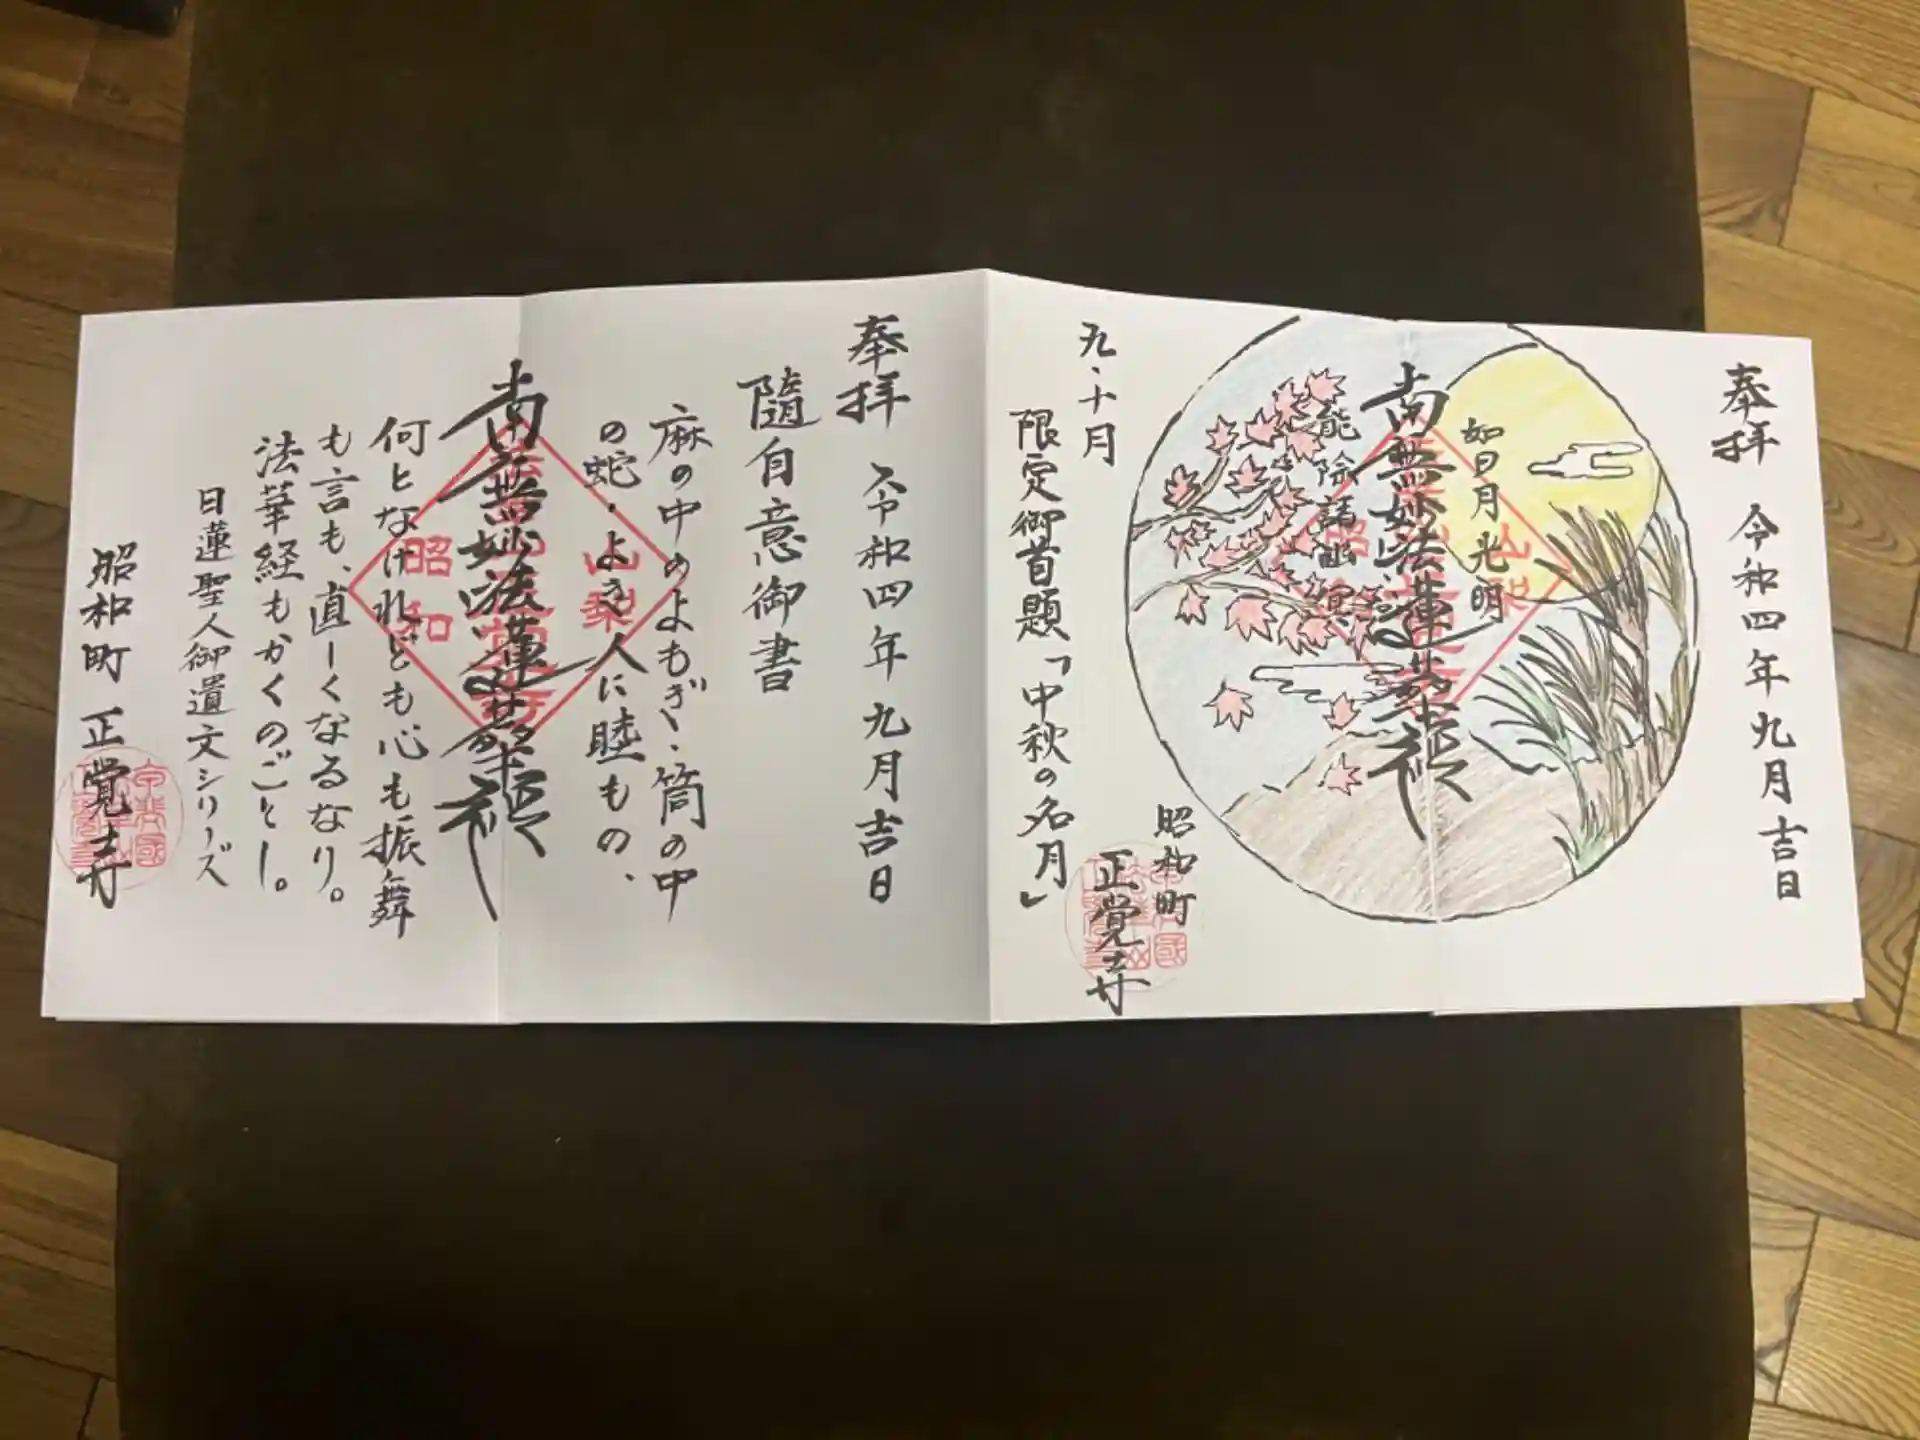 奉拝 令和四年九月吉日
如日月光明
南無妙法蓮華経
能除諸幽冥
昭和町
正覚寺
九・十月
限定御首題「中秋の名月」
奉拝 令和四年九月吉日
隨自意御書
麻の中のよもぎ・筒の中
の蛇・よき人に睦もの、
南無妙法蓮華経
山梨
昭和
何となけれども心も振舞
も言も、直しくなるなり。
法華経もかくのごとし。
日蓮聖人御遺文シリーズ
昭和町 正覚寺